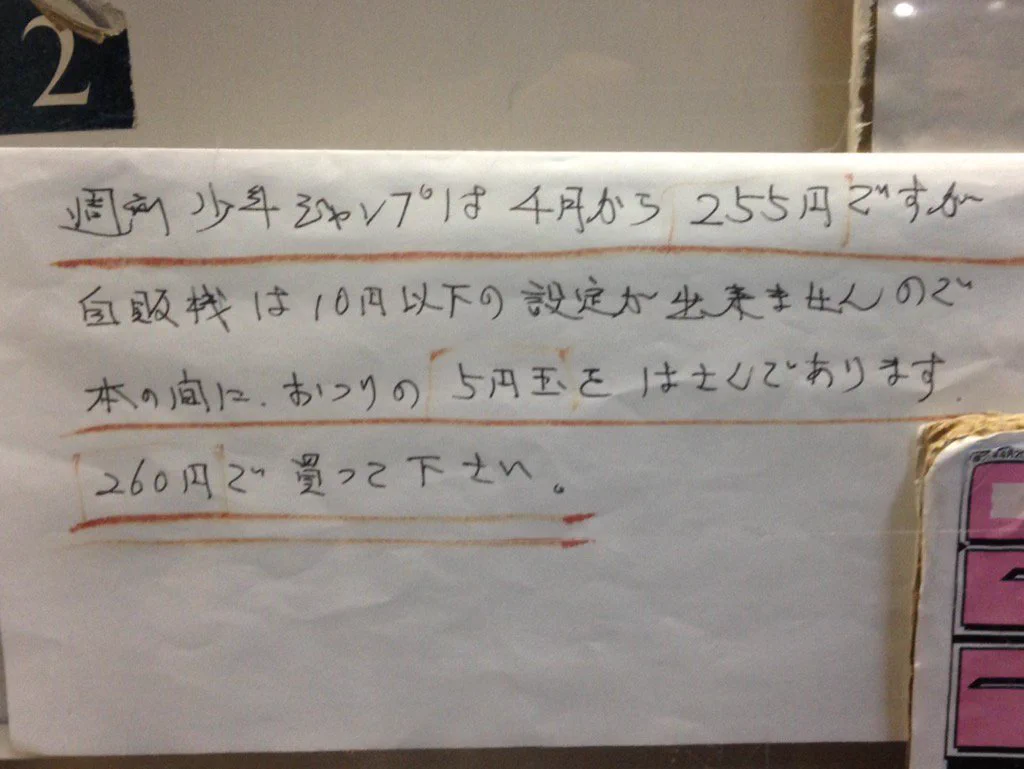 2
週刊 少年ジャンプは 4月から 255円ですが
自販機は10円以下の設定が出来ませんので
本の間に、おつりの 5円玉を はさんであります.
260円で 買って下さい。